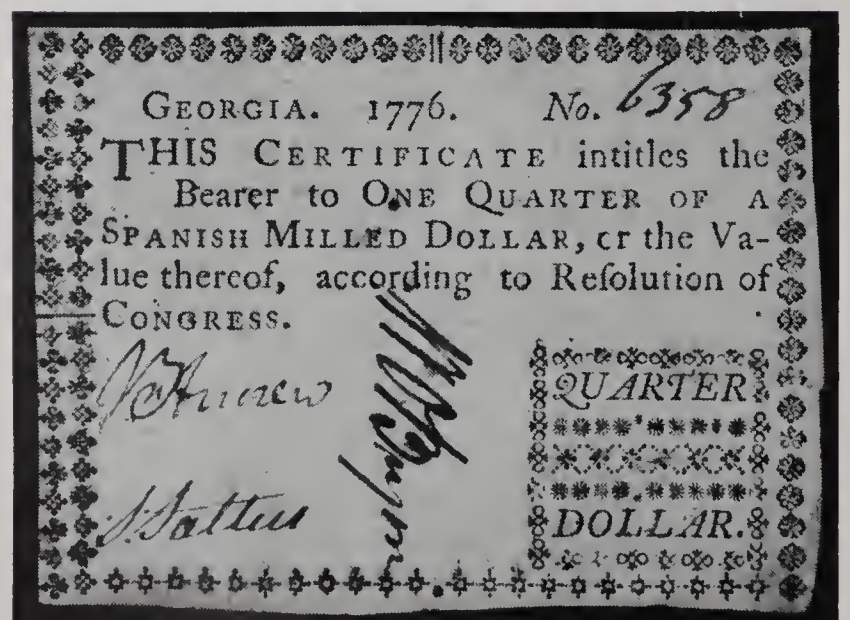 GEORGIA. 1776. No. 6358
THIS CERTIFICATE intitles the
Bearer to ONE QUARTER OF A
SPANISH MILLED DOLLAR, or the Va-
lue thereof, according to Reſolution of
CONGRESS.
QUARTER
DOLLAR.